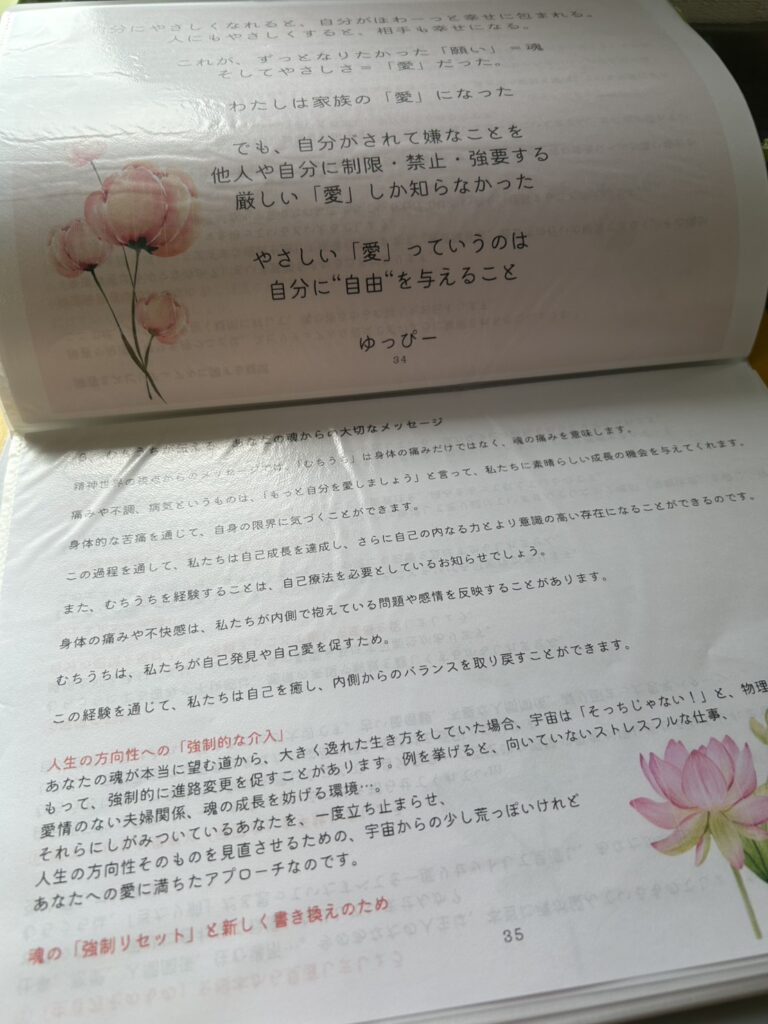 自分にやさしくなれると、自分がほわーっと幸せに包まれる。
人にもやさしくすると、相手も幸せになる。
これが、ずっとなりたかった「願い」=魂
そしてやさしさ=「愛」だった。
わたしは家族の「愛」になった
でも、自分がされて嫌なことを
他人や自分に制限・禁止・強要する
厳しい「愛」しか知らなかった
やさしい「愛」っていうのは
自分に“自由“を与えること
ゆっぴー
34
あなたの魂からの大切なメッセージ
精神世界の視点からのメッセージでは、「むちうち」は身体の痛みだけではなく、魂の痛みを意味します。
痛みや不調、病気というものは、「もっと自分を愛しましょう」と言って、私たちに素晴らしい成長の機会を与えてくれます。
身体的な苦痛を通じて、自身の限界に気づくことができます。
この過程を通して、私たちは自己成長を達成し、さらに自己の内なる力とより意識の高い存在になることができるのです。
また、むちうちを経験することは、自己療法を必要としているお知らせでしょう。
身体の痛みや不快感は、私たちが内側で抱えている問題や感情を反映することがあります。
むちうちは、私たちが自己発見や自己愛を促すため。
この経験を通じて、私たちは自己を癒し、内側からのバランスを取り戻すことができます。
人生の方向性への「強制的な介入」
あなたの魂が本当に望む道から、大きく逸れた生き方をしていた場合、宇宙は「そっちじゃない!」と、物理
もって、強制的に進路変更を促すことがあります。例を挙げると、向いていないストレスフルな仕事、
愛情のない夫婦関係、魂の成長を妨げる環境…。
それらにしがみついているあなたを、一度立ち止まらせ、
人生の方向性そのものを見直させるための、宇宙からの少し荒っぽいけれど
あなたへの愛に満ちたアプローチなのです。
魂の「強制リセット」と新しく書き換えのため
35